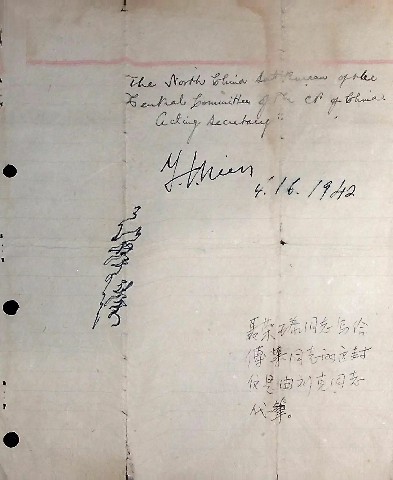 The North China Sub Bureau of the
Central Committee of the CP of China
Acting Secretary
4. 16. 1942
聂荣臻同志写给
傅萊同志的这封
信是由克同志
代筆。